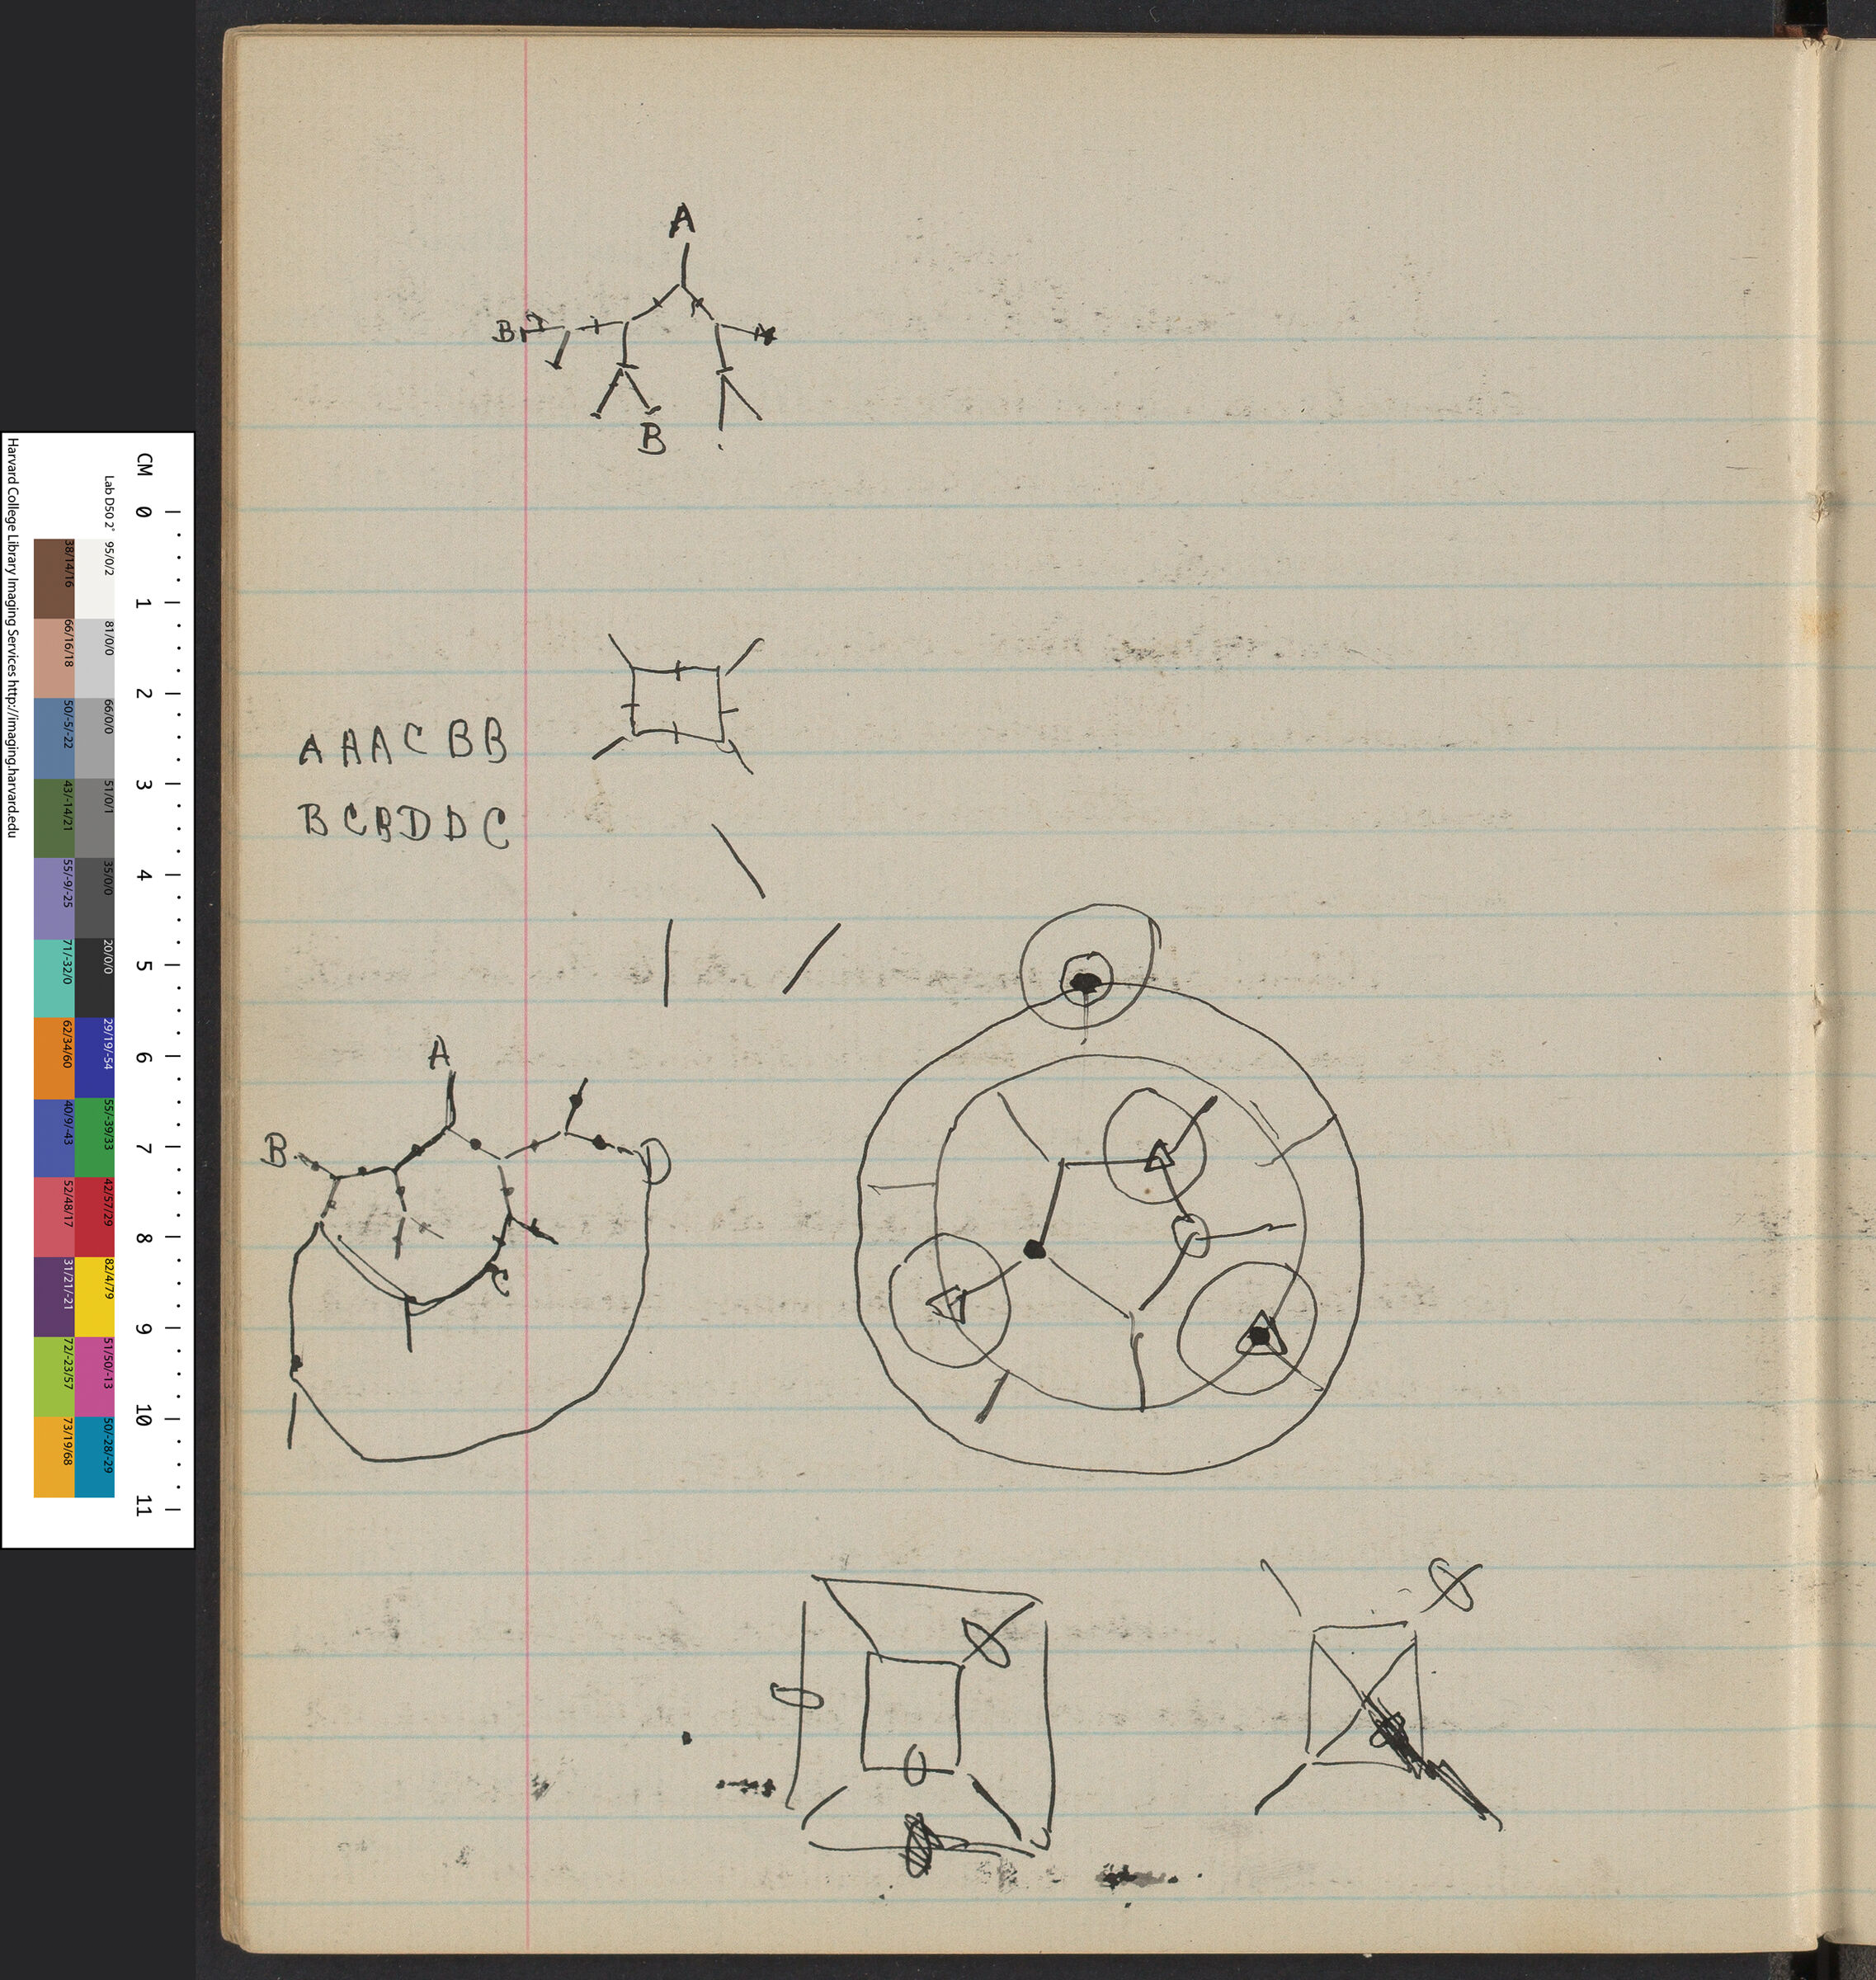 A
B
B
A A A C B B
B C B D D C
A
B
D
C
CM 0 1 2 3 4 5 6 7 8 9 10 11
Lab D50 2°
95/0/2 81/0/0 66/0/0 51/0/1 35/0/0 20/0/0 29/19/-54 55/-39/33 42/57/29 82/4/79 51/50/-13 50/-28/-29
38/14/16 66/16/18 50/-5/-22 43/-14/21 55/-9/-25 71/-32/0 62/34/60 40/9/-43 52/48/17 31/21/-21 72/-23/57 73/19/68
Harvard College Library Imaging Services http://imaging.harvard.edu